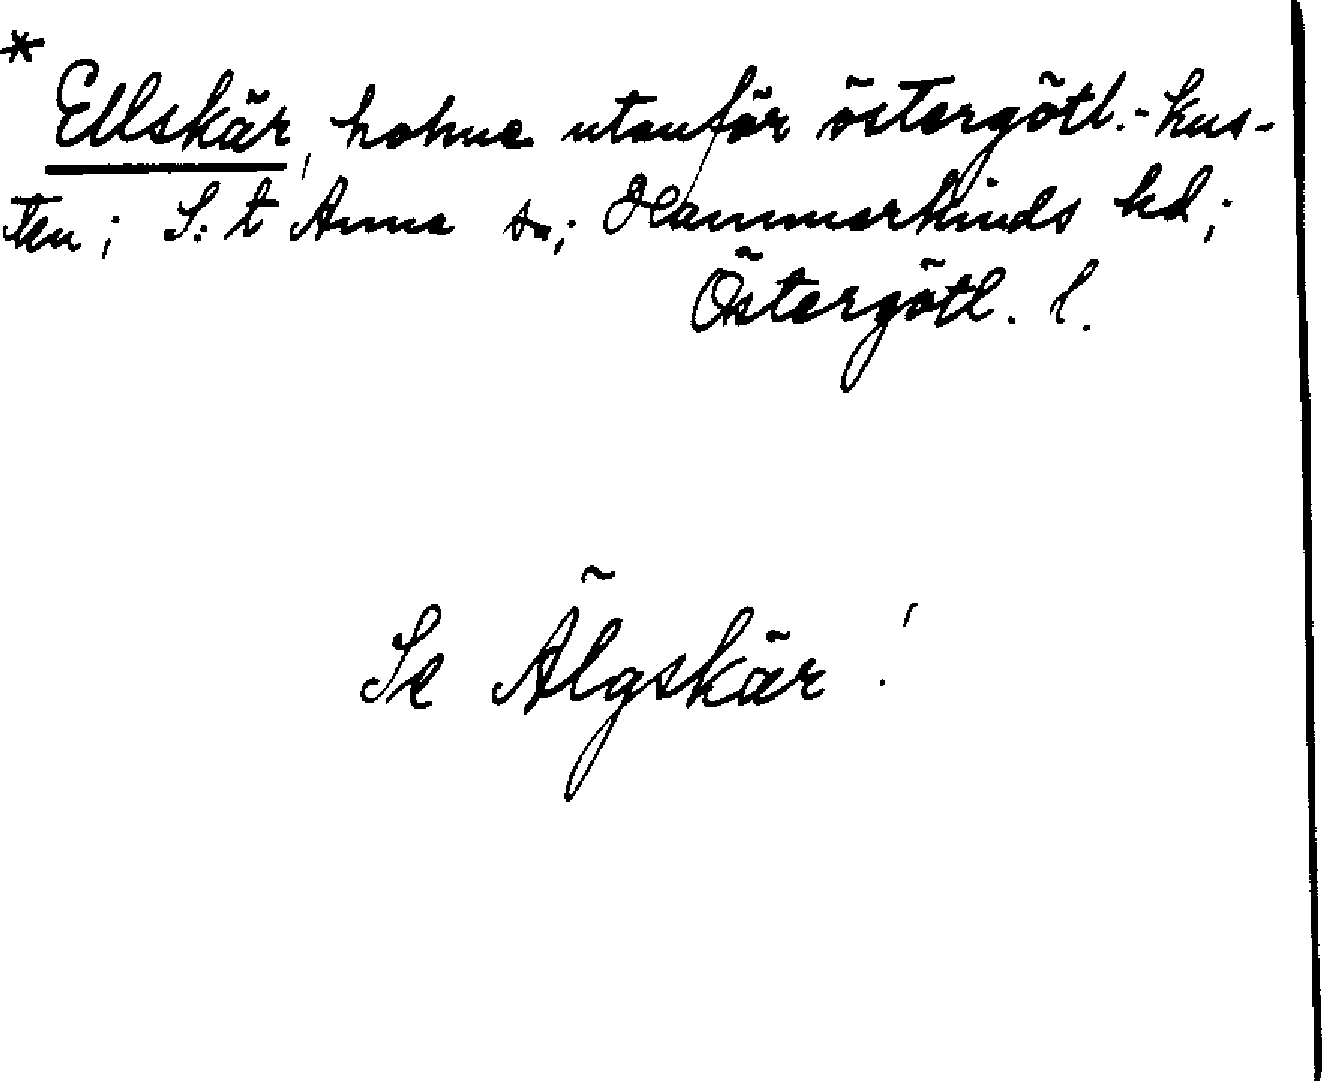 * Ellskär, holme utanför östergötl.-kus-
ten; S:t Anna sn; Hammarkinds hd;
Östergötl. l.
Se Älgskär!